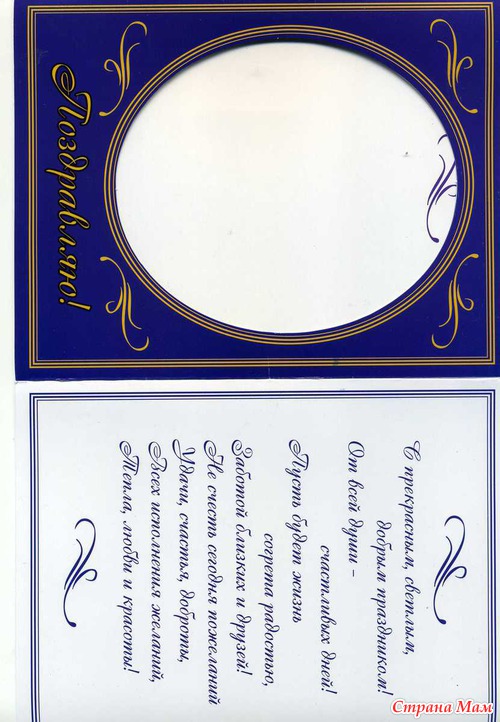 Поздравляю!
С прекрасным, светлым,
добрым праздником!
От всей души -
счастливых дней!
Пусть будет жизнь
согрета радостью,
Заботой близких и друзей!
Не счесть сегодня пожеланий
Удачи, счастья, доброты,
Всех исполненья желаний,
Тепла, любви и красоты!
Страна Мам